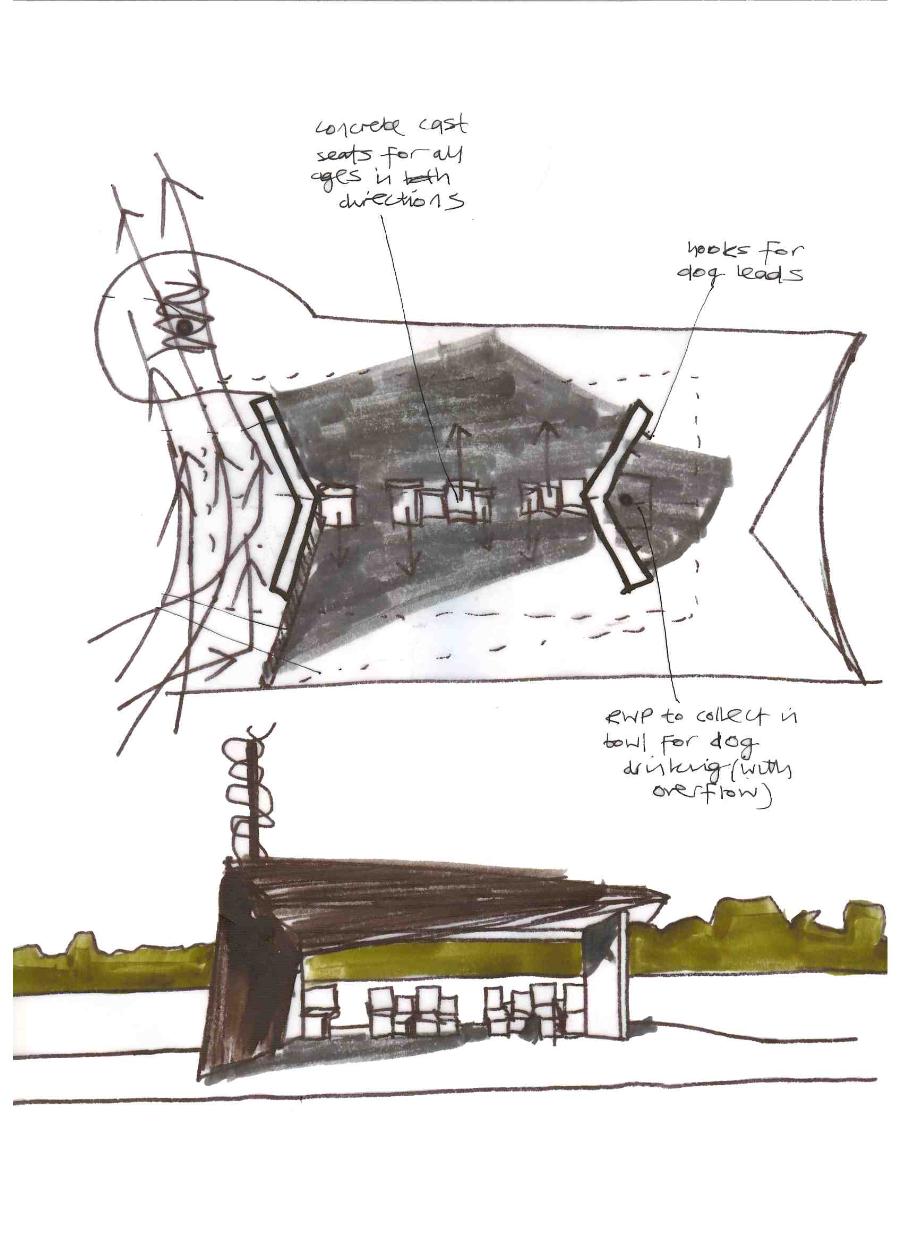 concrete cast
seats for all
ages in both
directions
hooks for
dog leads
RWP to collect in
bowl for dog
drinking (with
overflow)